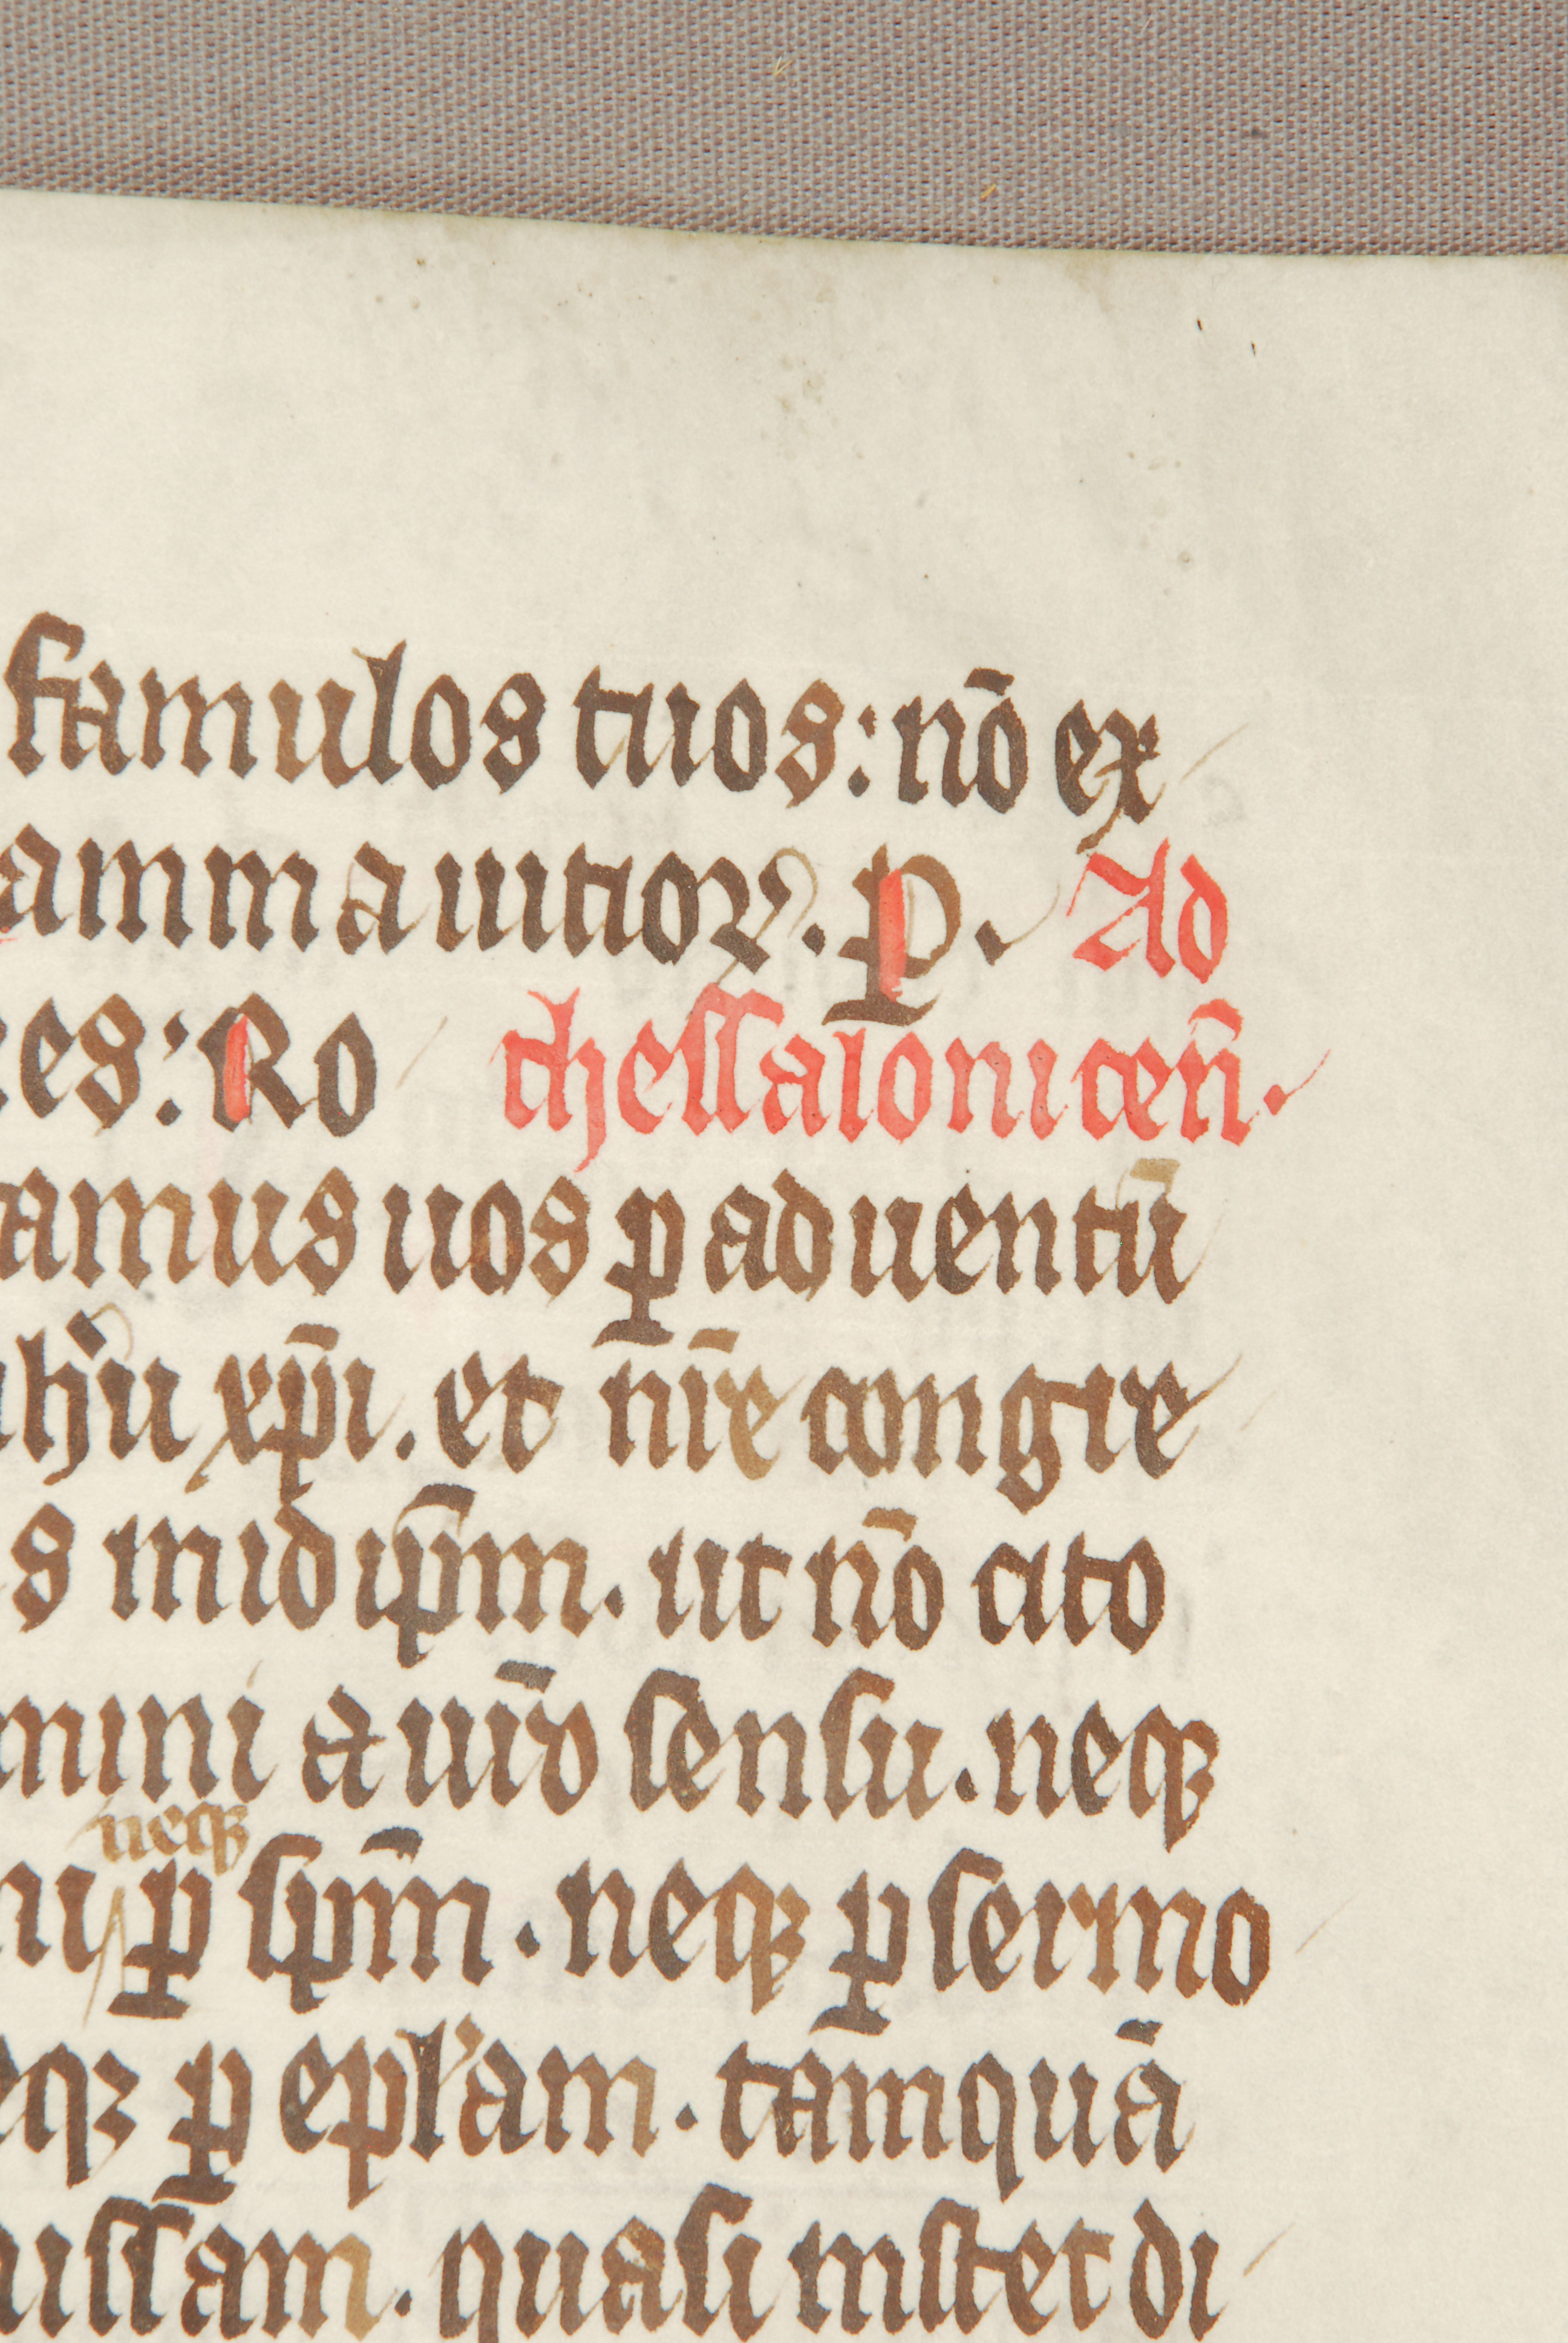 famulos tuos: nō ex
amma uitioꝝ. P. Ad
es: Ro thessalonicen̄.
amus uos ꝑ aduentū
ihū xp̄i. et nr̄e congre
s in id ip̄m. ut nō cito
mini a ur̄o sensu. neqꝫ
neqꝫ
ꝑ sp̄m. neqꝫ ꝑ sermo
eqꝫ ꝑ epl'am. tāmquā
issam. quasi instet di